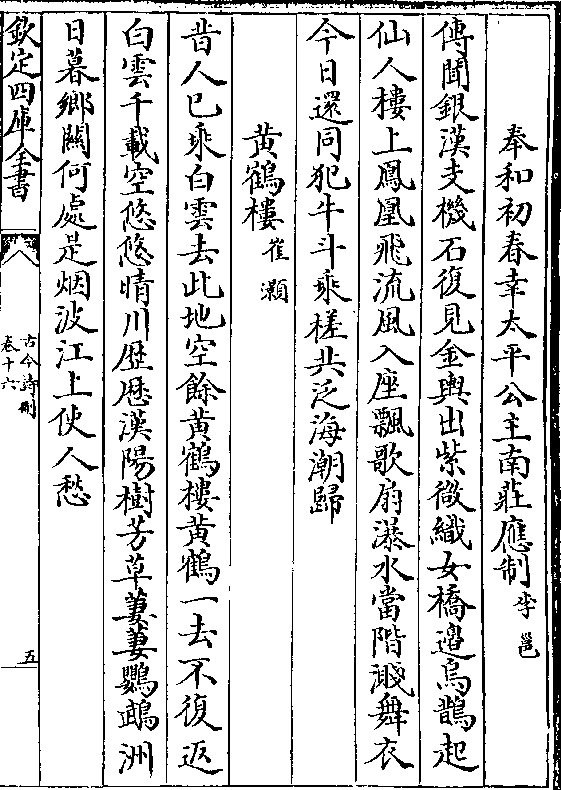 奉和初春幸太平公主南莊應制李邕
傳聞銀漢支機石復見金輿出紫微織女橋邉烏鵲起
仙人樓上鳳凰飛流風入座飄歌扇瀑水當階濺舞衣
今日還同犯牛斗乘槎共泛海潮歸
黄鶴樓崔灝
昔人已乘白雲去此地空餘黄鶴樓黄鶴一去不復返
白雲千載空悠悠晴川歴歴漢陽樹芳草萋萋鸚鵡洲
日暮鄉關何處是烟波江上使人愁
欽定四庫全書
古今詩刪
卷十六
五